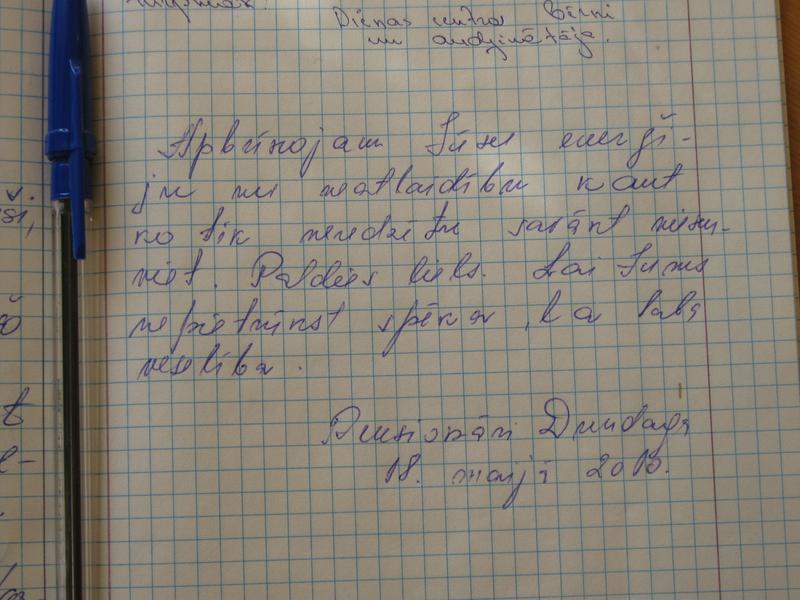 Dienas centra bērni
un audzinātāja.
Apbrīnojam Jūsu enerģi-
ju un neatlaidību kaut
ko tik neredzētu savākt vienu-
viet. Paldies liels. Lai Jums
nepietrūkst spēka, k a laba
veselība.
Pensionāri Dundagā
18. maijā 2010.